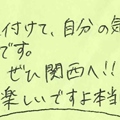 付けて、自分の気
です。
ぜひ関西へ!!
楽しいですよ本当